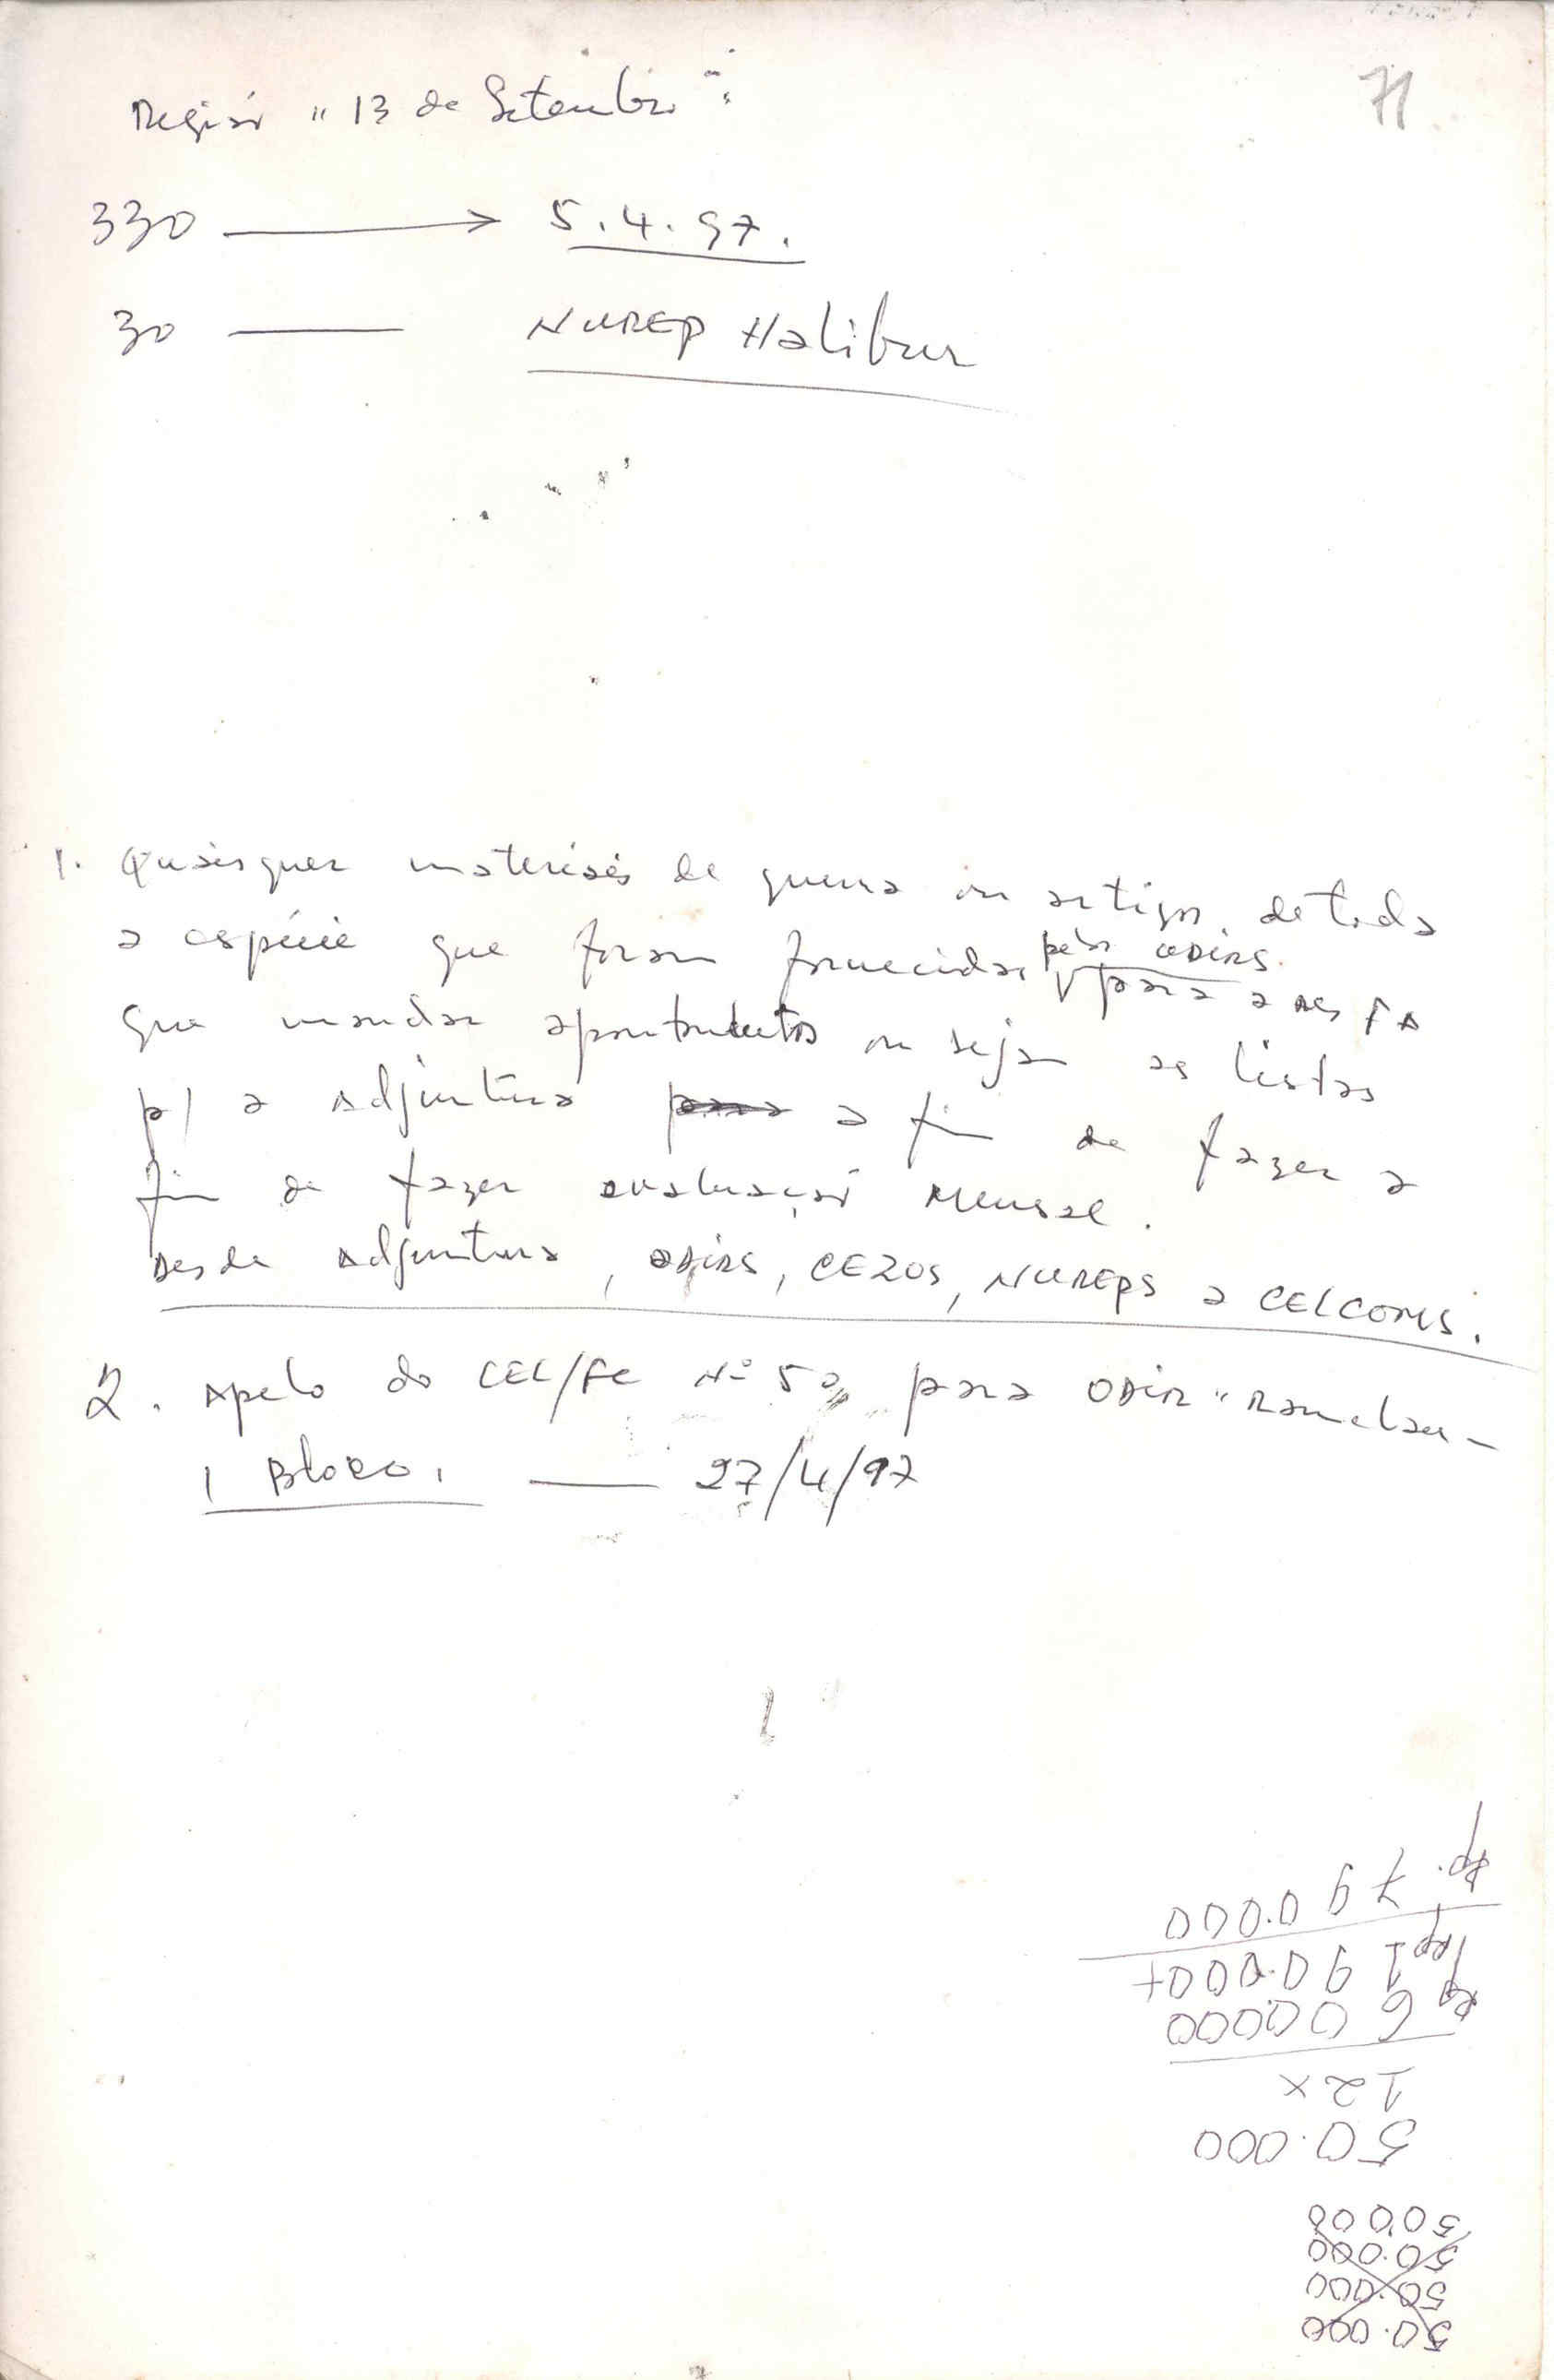 71
Região "13 de Setembro":
330 → 5.4.97.
30 — NUREP Halibur
1. Quaisquer materiais de guerra ou artigos de toda
a espécie que foram fornecidos pelos ODIRS para a
que mandar apontamentos ou seja as listas
p/ a Adjuntura para a fim de fazer a
fim de fazer avaluação Mensal.
Desde Adjuntura, ODIRS, CEZOS, NUREPS a CELCOMS.
2. Apelo do CEL/FC Nº 5 para ODIR "Ramelau -
1 Bloco. — 27/4/97
50.000
50.000
50.000
50.000
50.000
12x
Rp 600.000
Rp 190.000+
Rp. 790.000